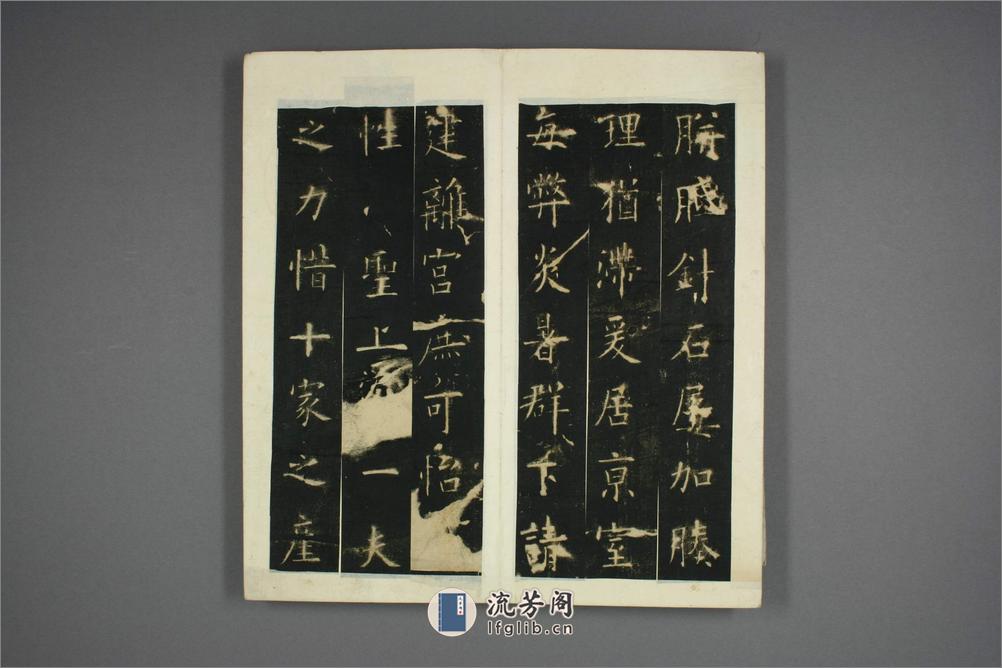 胼胝針石屢加腠
理猶滯爰居京室
每弊炎暑群下請
建離宮庶可怡
性聖上一夫
之力惜十家之產
流芳阁
lfglib.cn